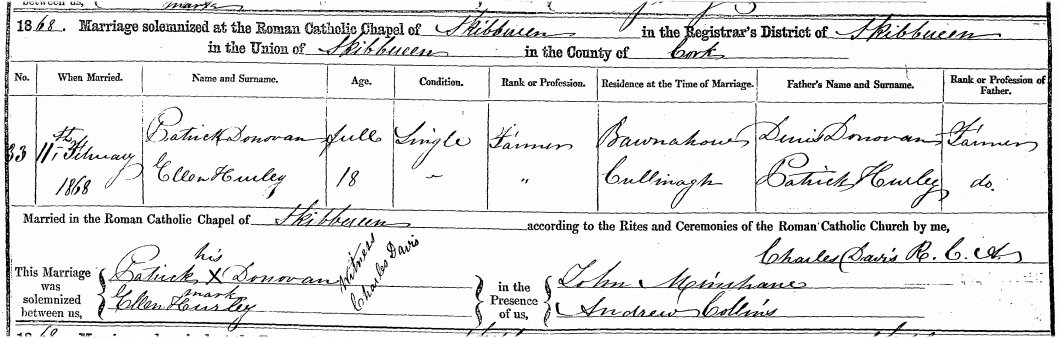 between us, mark
1868. Marriage solemnized at the Roman Catholic Chapel of Skibbereen in the Registrar's District of Skibbereen
in the Union of Skibbereen in the County of Cork
No. When Married. Name and Surname. Age. Condition. Rank or Profession. Residence at the Time of Marriage. Father's Name and Surname. Rank or Profession of Father.
33 11th February 1868 Patrick Donovan full Single Farmer Bawnahow Denis Donovan Farmer
Ellen Hurley 18 " " Cullinagh Patrick Hurley do.
Married in the Roman Catholic Chapel of Skibbereen according to the Rites and Ceremonies of the Roman Catholic Church by me,
Charles Davis R. C. A.
This Marriage was solemnized between us,
Patrick his X mark Donovan
Ellen Hurley
Witness Charles Davis
in the Presence of us,
John Minihane
Andrew Collins